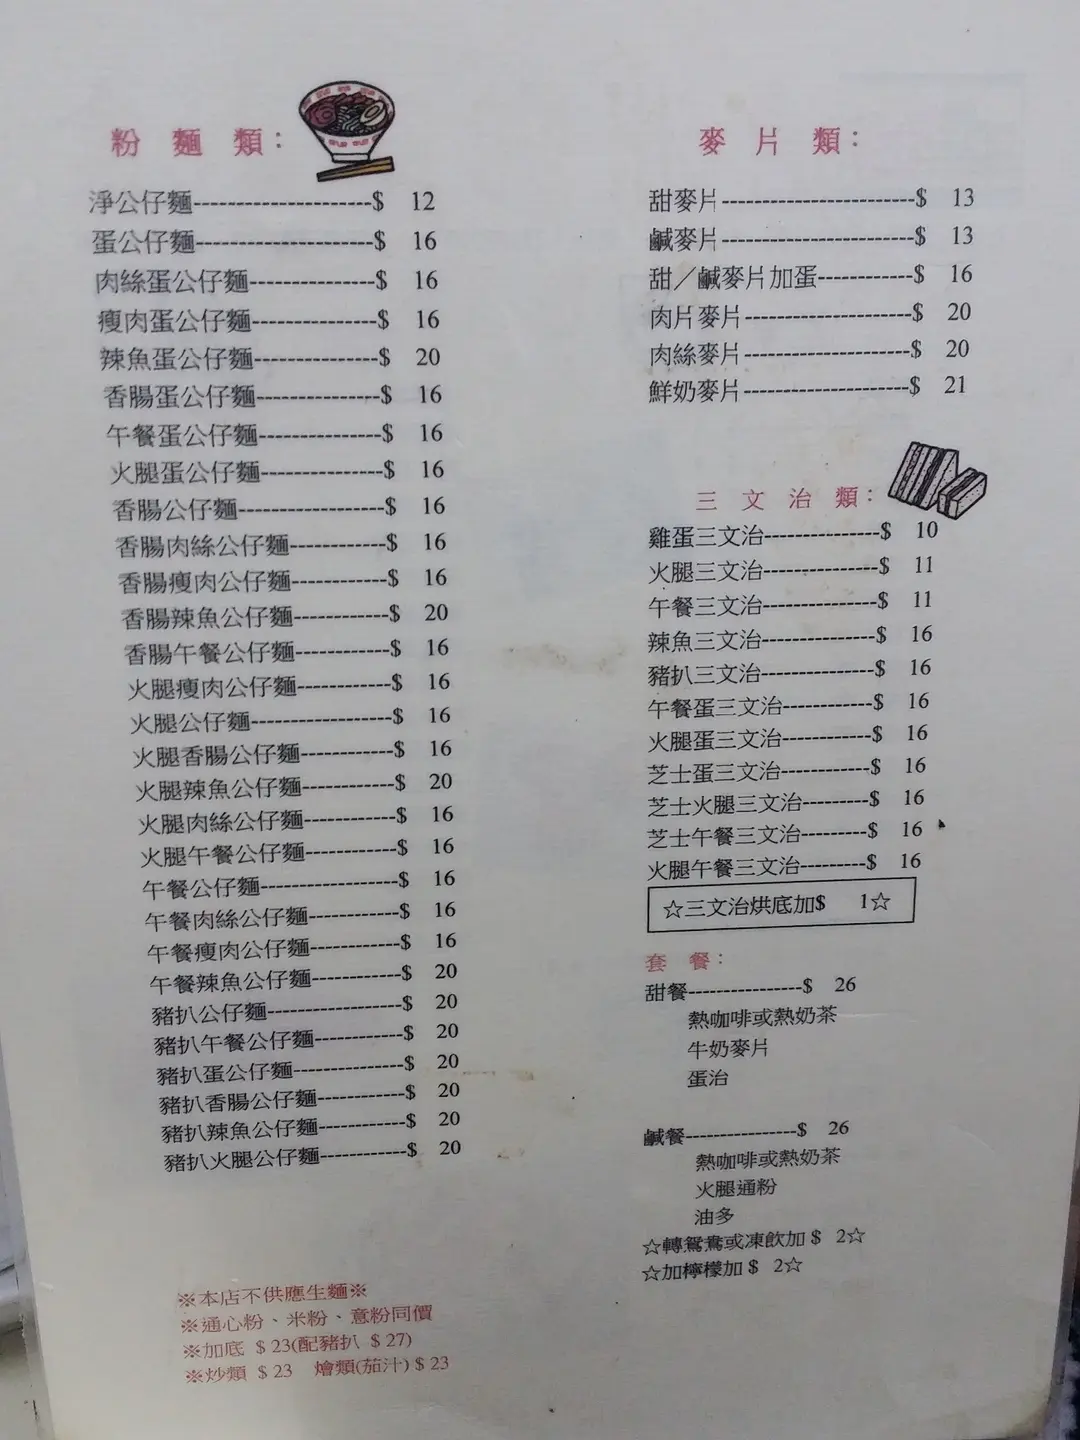 粉麵類:
淨公仔麵---------------------$ 12
蛋公仔麵---------------------$ 16
肉絲蛋公仔麵---------------$ 16
瘦肉蛋公仔麵---------------$ 16
辣魚蛋公仔麵---------------$ 20
香腸蛋公仔麵---------------$ 16
午餐蛋公仔麵---------------$ 16
火腿蛋公仔麵---------------$ 16
香腸公仔麵------------------$ 16
香腸肉絲公仔麵------------$ 16
香腸瘦肉公仔麵------------$ 16
香腸辣魚公仔麵------------$ 20
香腸午餐公仔麵------------$ 16
火腿瘦肉公仔麵------------$ 16
火腿公仔麵------------------$ 16
火腿香腸公仔麵------------$ 16
火腿辣魚公仔麵------------$ 20
火腿肉絲公仔麵------------$ 16
火腿午餐公仔麵------------$ 16
午餐公仔麵------------------$ 16
午餐肉絲公仔麵------------$ 16
午餐瘦肉公仔麵------------$ 16
午餐辣魚公仔麵------------$ 20
豬扒公仔麵------------------$ 20
豬扒午餐公仔麵------------$ 20
豬扒蛋公仔麵---------------$ 20
豬扒香腸公仔麵------------$ 20
豬扒辣魚公仔麵------------$ 20
豬扒火腿公仔麵------------$ 20
※本店不供應生麵※
※通心粉、米粉、意粉同價
※加底 $ 23(配豬扒 $ 27)
※炒類 $ 23 燴類(茄汁) $ 23
麥片類:
甜麥片------------------------$ 13
鹹麥片------------------------$ 13
甜／鹹麥片加蛋------------$ 16
肉片麥片---------------------$ 20
肉絲麥片---------------------$ 20
鮮奶麥片---------------------$ 21
三文治類:
雞蛋三文治-----------------$ 10
火腿三文治-----------------$ 11
午餐三文治-----------------$ 11
辣魚三文治-----------------$ 16
豬扒三文治-----------------$ 16
午餐蛋三文治--------------$ 16
火腿蛋三文治--------------$ 16
芝士蛋三文治--------------$ 16
芝士火腿三文治-----------$ 16
芝士午餐三文治-----------$ 16
火腿午餐三文治-----------$ 16
☆三文治烘底加$ 1☆
套餐:
甜餐------------------$ 26
熱咖啡或熱奶茶
牛奶麥片
蛋治
鹹餐------------------$ 26
熱咖啡或熱奶茶
火腿通粉
油多
☆轉鴛鴦或凍飲加 $ 2☆
☆加檸檬加 $ 2☆